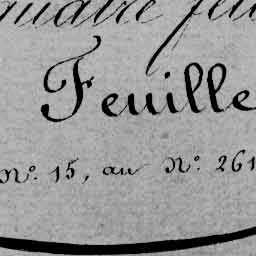 quatre feu
Feuille
N.º 15, au N.º 261